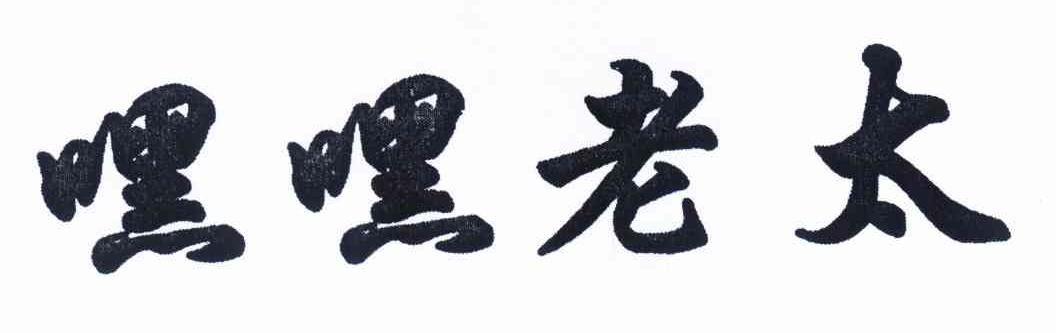 嘿嘿老太